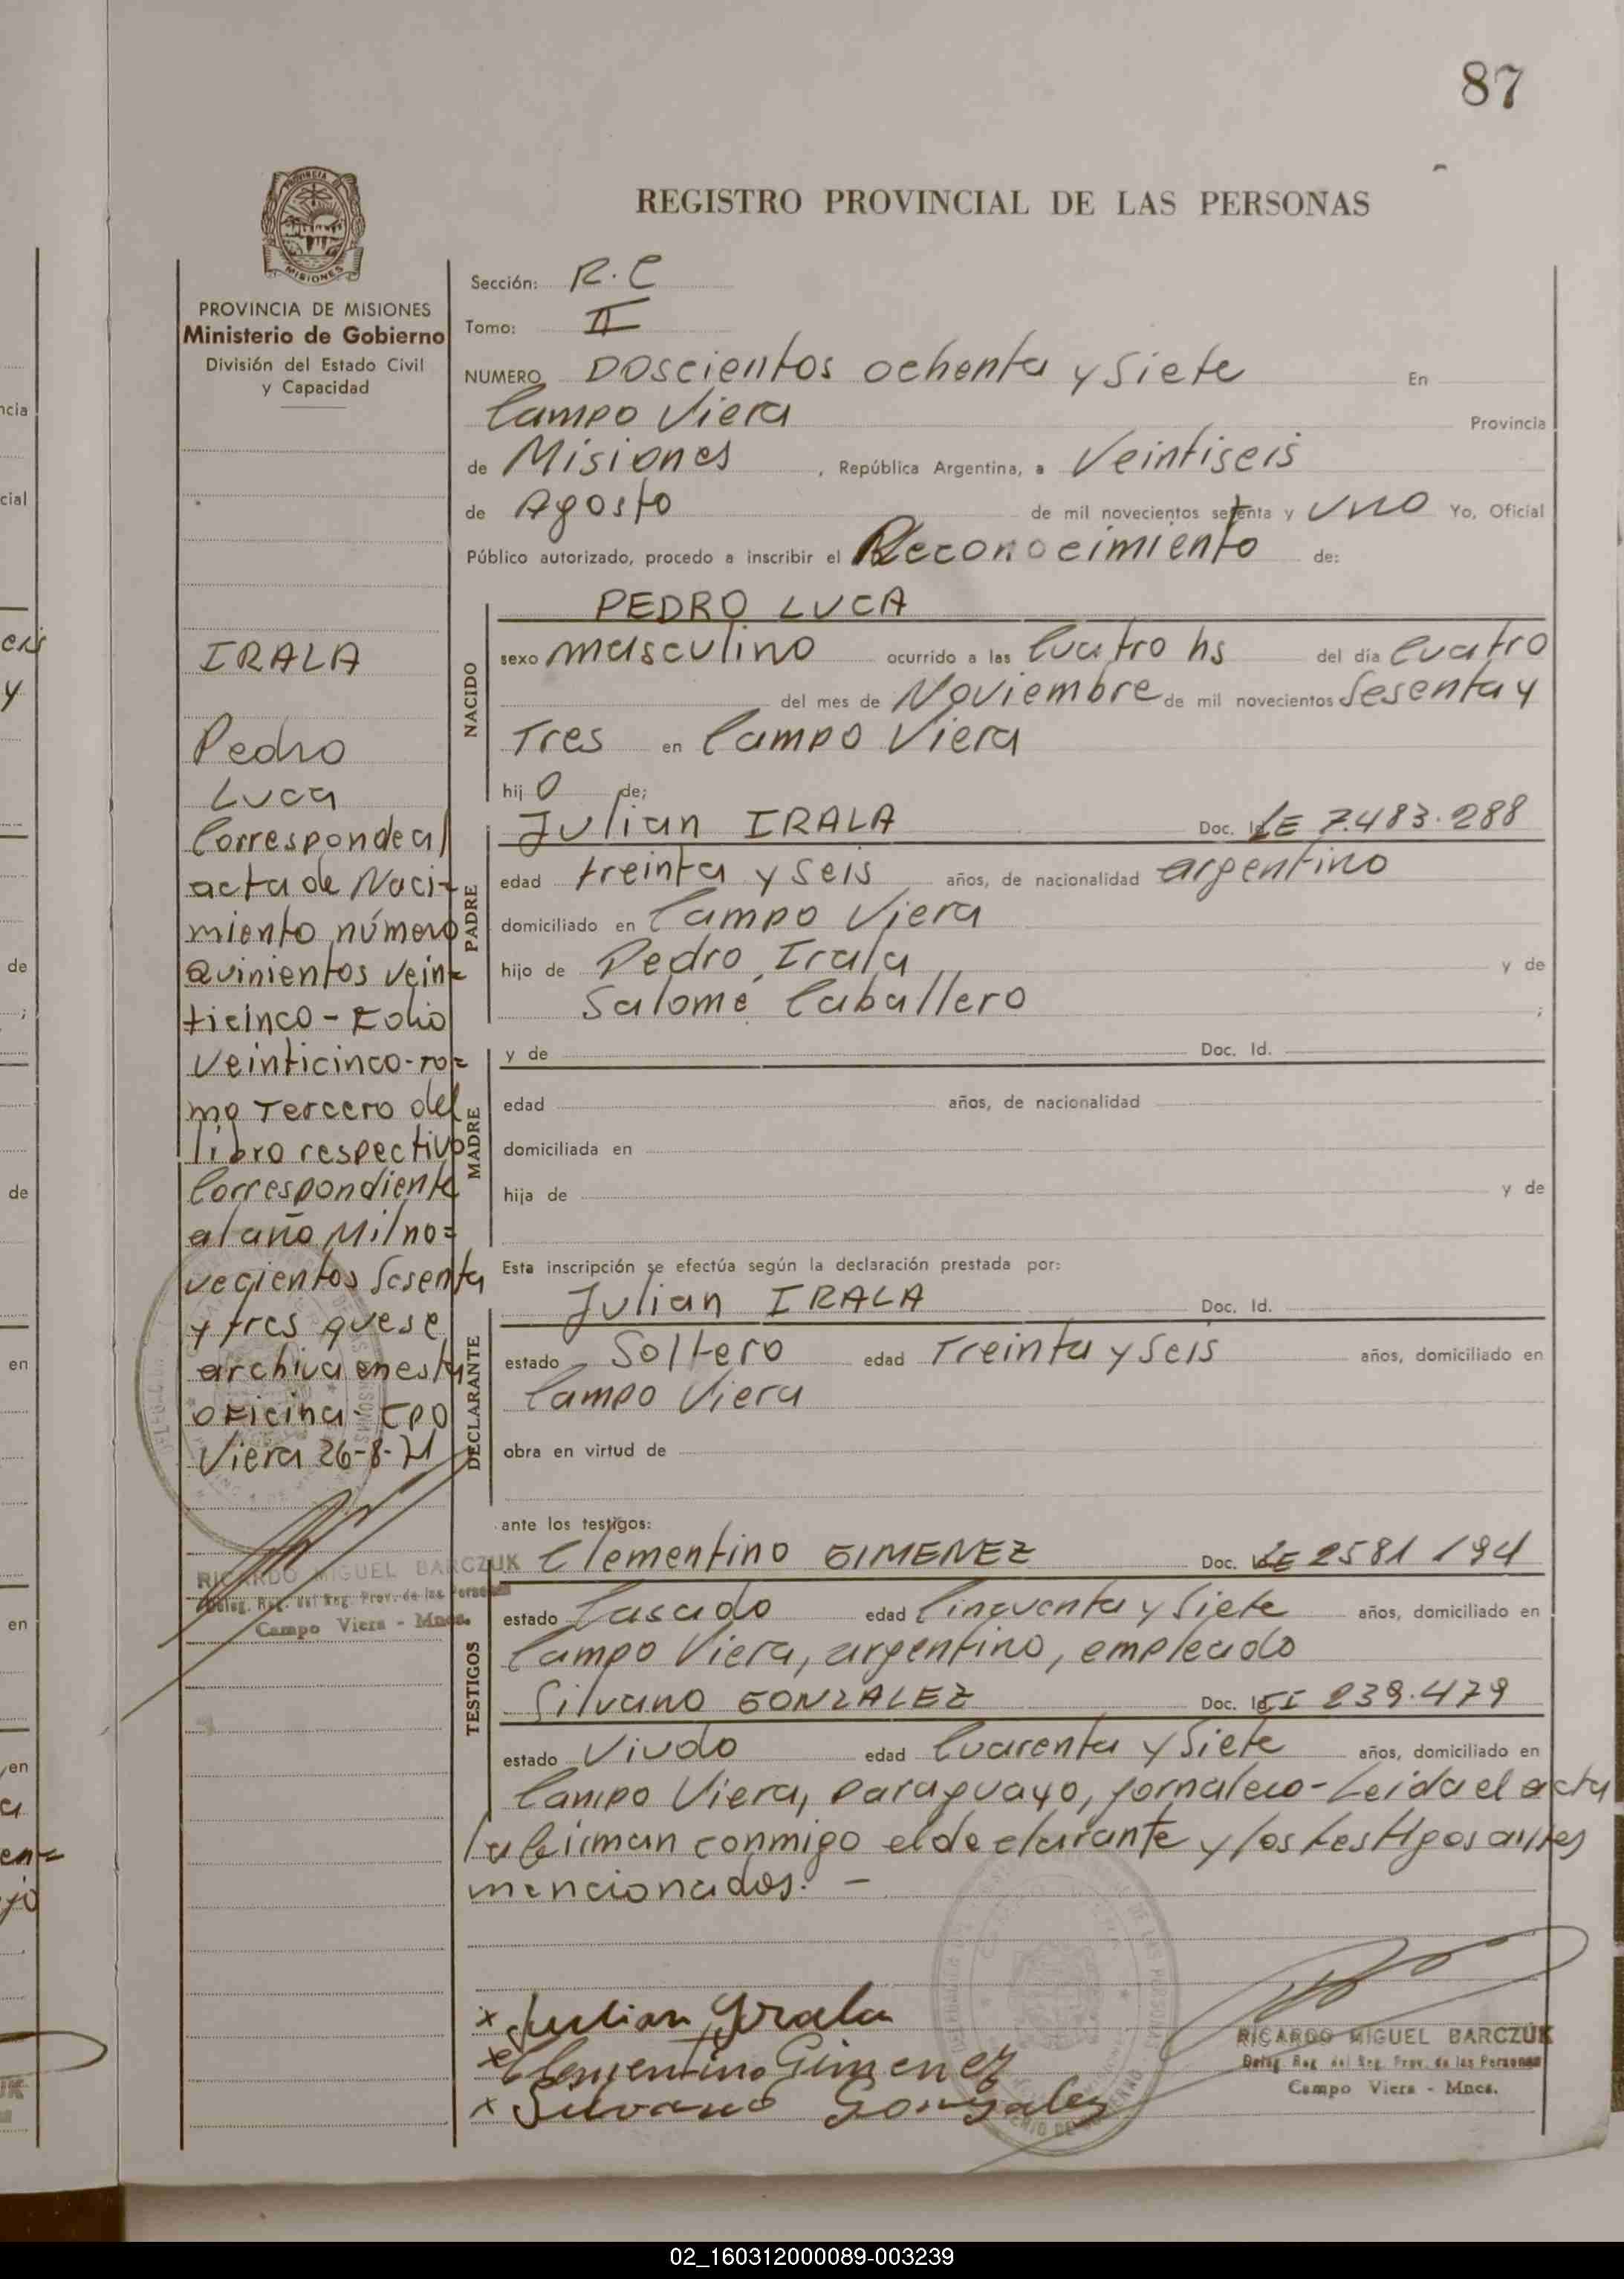 87
REGISTRO PROVINCIAL DE LAS PERSONAS
PROVINCIA DE MISIONES
Ministerio de Gobierno
División del Estado Civil
y Capacidad
IRALA
Pedro
Luca
Corresponde al
acta de Naci-
miento número
Quinientos vein=
ticinco - Folio
Veinticinco-to=
mo Tercero del
libro respectivo
Correspondiente
al año Mil no=
vecientos Sesenta
y tres que se
archiva en esta
Oficina - CPO
Viera 26-8-71
RICARDO MIGUEL BARCZUK
Deleg. Reg. del Reg. Prov. de las Personas
Campo Viera - Mnes.
Sección: R.C
Tomo: II
NUMERO Doscientos ochenta y Siete En
Campo Viera Provincia
de Misiones, República Argentina, a Veintiseis
de Agosto de mil novecientos setenta y uno Yo, Oficial
Público autorizado, procedo a inscribir el Reconocimiento de:
NACIDO
PEDRO LUCA
sexo masculino ocurrido a las Cuatro hs del día Cuatro
del mes de Noviembre de mil novecientos Sesenta y
Tres en Campo Viera
hijo de;
PADRE
Julian IRALA Doc. Id. LE 7.483.288
edad treinta y seis años, de nacionalidad argentino
domiciliado en Campo Viera
hijo de Pedro Irala y de
Salomé Caballero ;
MADRE
y de Doc. Id.
edad años, de nacionalidad
domiciliada en
hija de y de
Esta inscripción se efectúa según la declaración prestada por:
DECLARANTE
Julian IRALA Doc. Id.
estado Soltero edad Treinta y seis años, domiciliado en
Campo Viera
obra en virtud de
ante los testigos:
TESTIGOS
Clementino GIMENEZ Doc. Id. LE 2581194
estado Casado edad Cincuenta y Siete años, domiciliado en
Campo Viera, argentino, empleado
Silvano GONZALEZ Doc. Id. CI 239.479
estado Viudo edad Cuarenta y Siete años, domiciliado en
Campo Viera, paraguayo, jornalero - Leida el acta
la firman conmigo el declarante y los testigos antes
mencionados. -
x Julian Irala
x Clementino Gimenez
x Silvano Gonzalez
RICARDO MIGUEL BARCZUK
Deleg. Reg. del Reg. Prov. de las Personas
Campo Viera - Mnes.
02_160312000089-003239